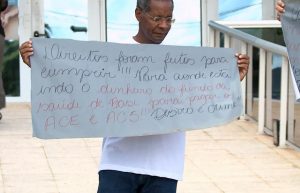 ¡Direitos foram feitos para
cumprir!!! Para aonde está
indo o dinheiro do fundo da
saúde de para pagar o
ACE e ACS!!! Desvio e